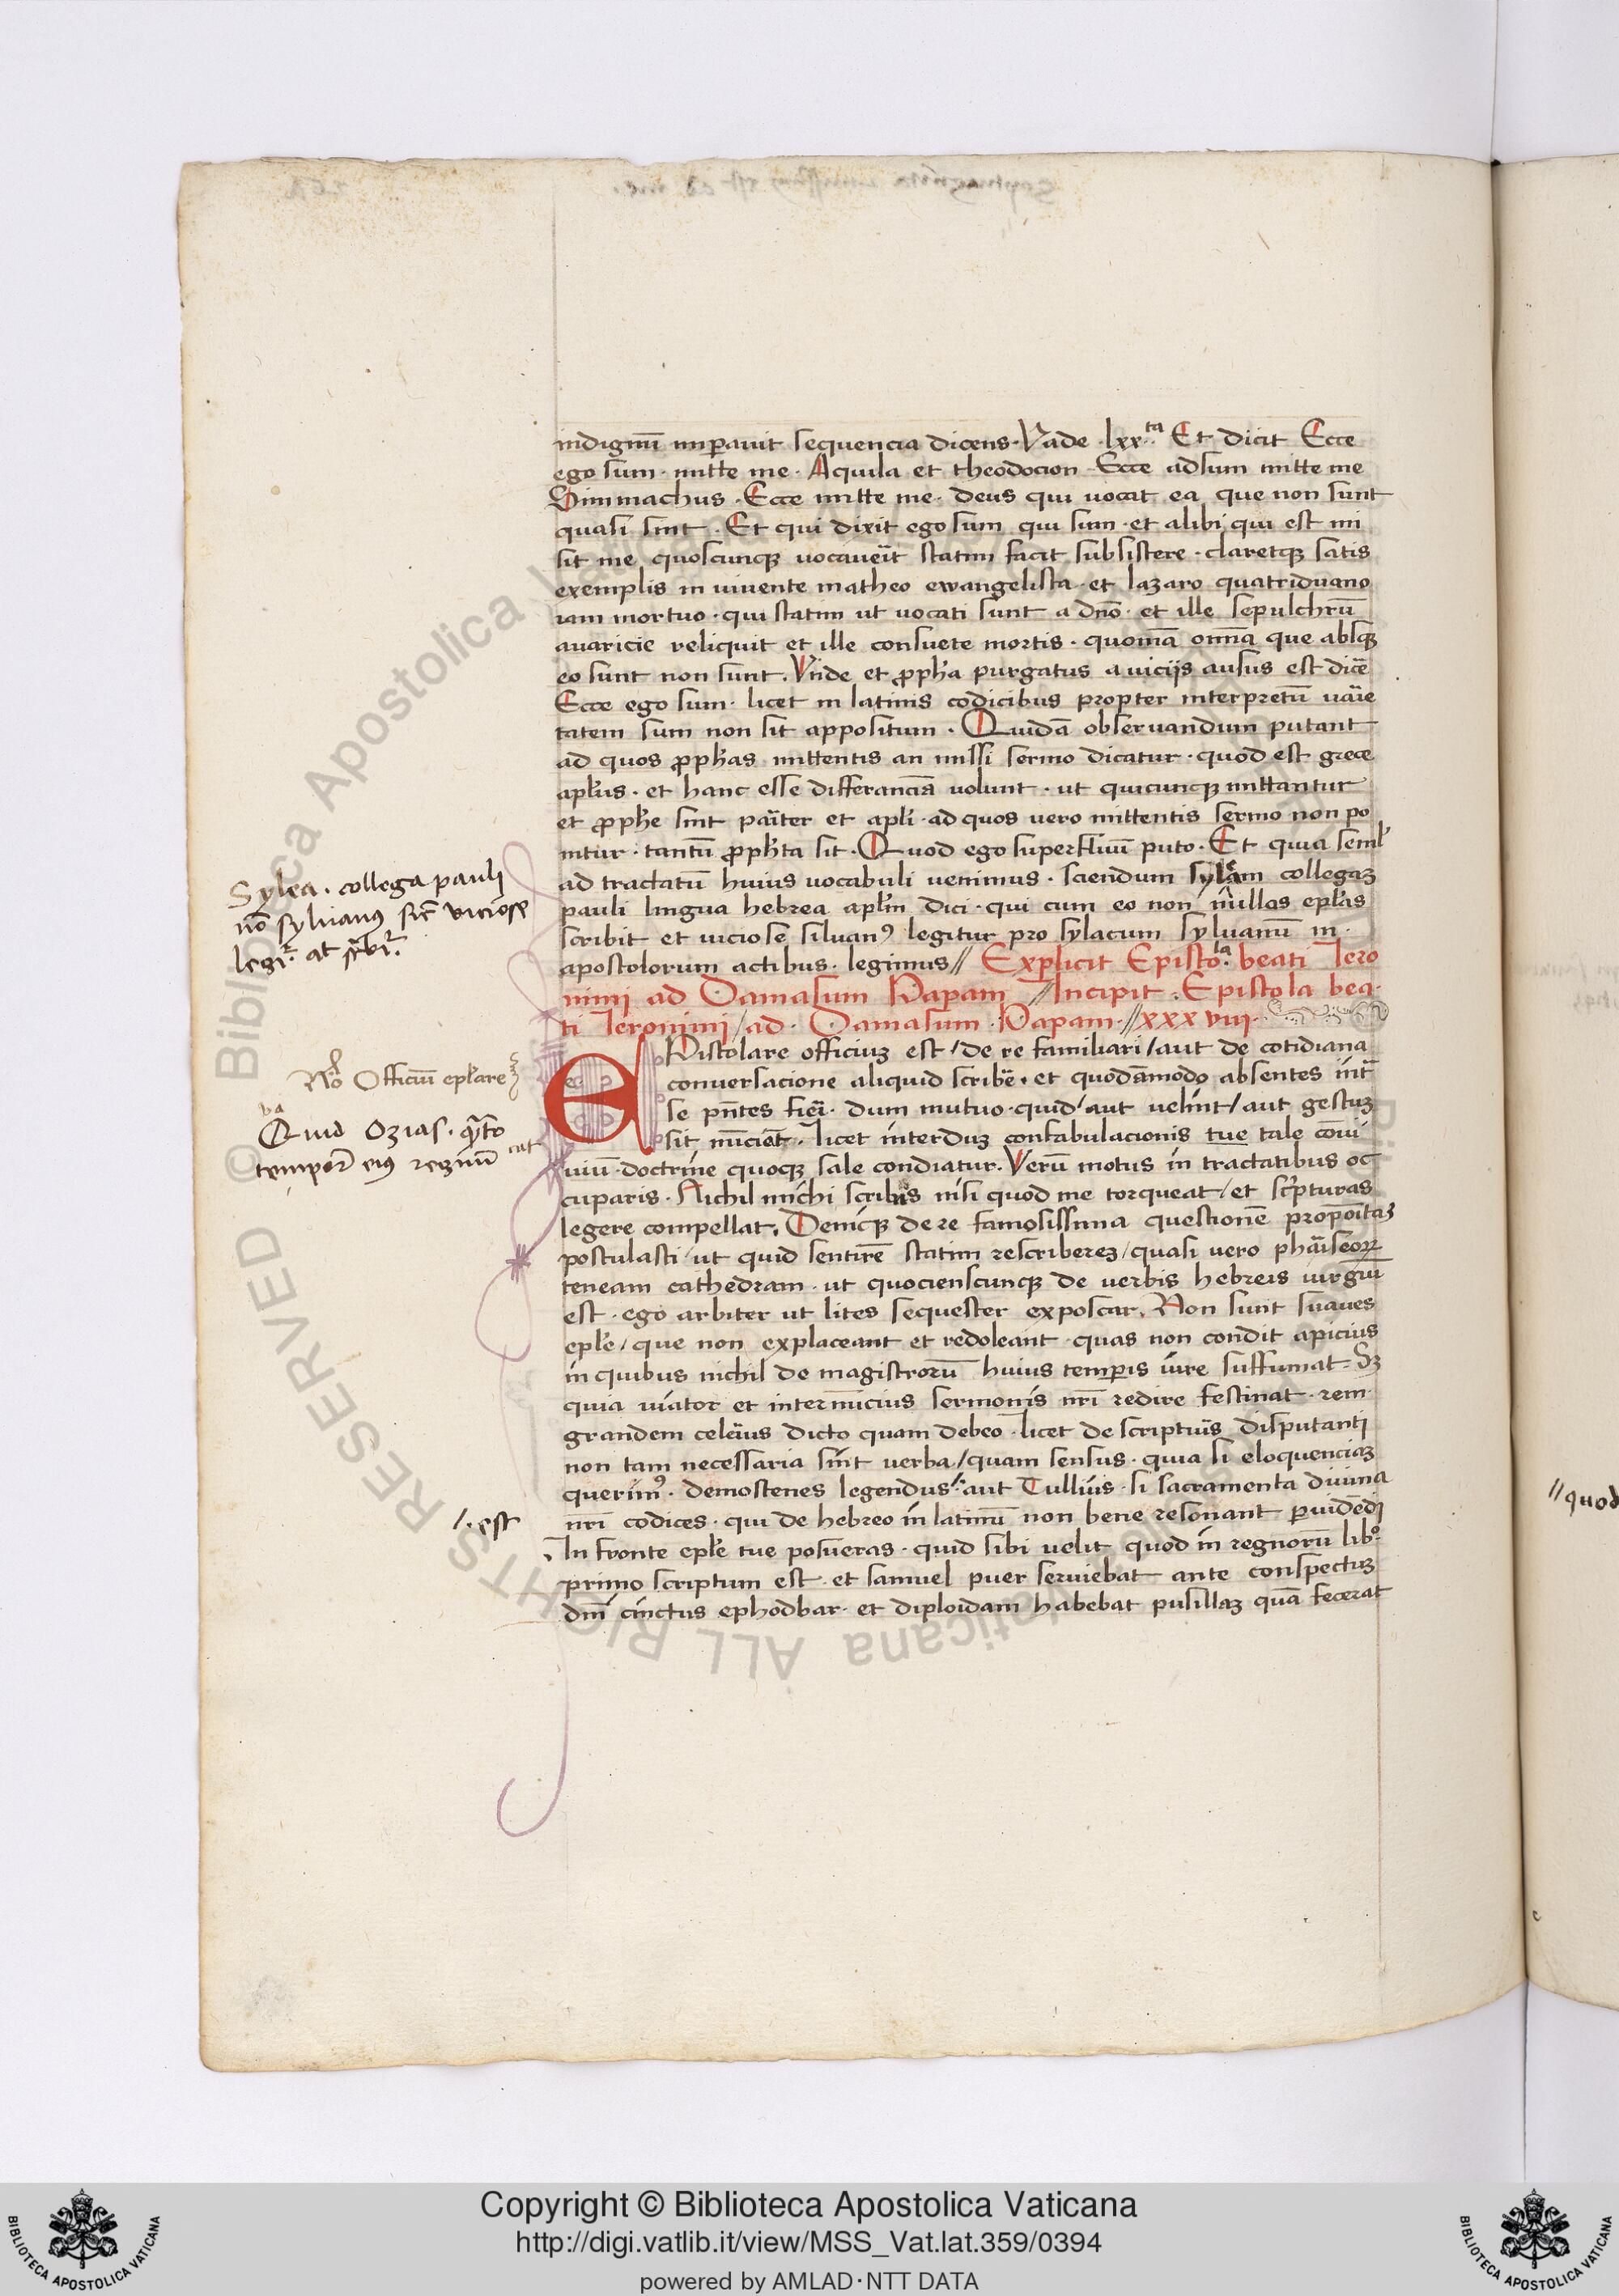 indignũ imꝑavit sequencia dicens. Vade .lxx.ta Et dicit Ecce
ego sum. mitte me. Aquila et theodocion Ecce adsum mitte me
Simmachus. Ecce mitte me. deus qui vocat ea que non sunt
quasi sint. Et qui dixit ego sum qui sum. et alibi qui est mi
sit me quoscunqꝫ vocaveit statim facit subsistere. claretqꝫ satis
exemplis in vivente matheo ewangelista. et lazaro quatriduano
iam mortuo. qui statim ut vocati sunt a dño. et ille sepulchrũ
avaricie reliquit et ille consuete mortis. quoniã omñia que absqꝫ
eo sunt non sunt. Vnde et ꝓpha purgatus a viciis ausus est dicẽ
Ecce ego sum. licet in latinis codicibus propter interpretũ vaie
tatem sum non sit appositum. Quidã observandum putant
ad quos ꝓphas mittentis an missi sermo dicatur. quod est grece
aplus. et hanc esse differanciã volunt. ut quicunqꝫ mittantur
et ꝓphe sint paiter et apli. ad quos vero mittentis sermo non po
nitur. tantũ ꝓpheta sit. Quod ego superfluũ puto. Et quia seml
ad tractatũ huius vocabuli venimus. sciendum sylam collegaꝫ
pauli lingua hebrea aplm dici. qui cum eo non nullas eplas
scribit et viciose silvanꝰ legitur pro sylacum sylvanũ in.
apostolorum actibus. legimus// Explicit Episto.la beati Iero
nimi ad Damasum Papam //Incipit. Epistola bea.
ti Ieronimi/ad. Damasum. Papam.//xxxviii.
ePistolare officiuꝫ est/de re familiari/aut de cotidiana
conversacione aliquid scribẽ. et quodãmodo absentes int̃
se pñtes fiei. dum mutuo. quid/aut velint/aut gestuꝫ
sit nũciẽt. licet interduꝫ confabulacionis tue tale cõvi
viũ. doctrine quoqꝫ sale condiatur. Verũ motus in tractatibus oc
cuparis. Nichil michi scribis nisi quod me torqueat/et scripturas
legere compellat. Deniqꝫ de re famosissima questionẽ propoitaꝫ
postulasti/ut quid sentirẽ statim rescribereꝫ/quasi vero phaiseoꝝ
teneam cathedram. ut quocienscunqꝫ de verbis hebreis iurgiũ
est. ego arbiter ut lites sequester exposcar. Non sunt suaves
eple/que non explaceant et redoleant. quas non condit apicius
in quibus nichil de magistrorũ huius temꝑis iure suffumat. Sꝫ
quia viator et internũcius sermonis nri redire festinat. rem.
grandem celeius dicto quam debeo. licet de scriptuis disputanti
non tam necessaria sint verba/quam sensus. quia si eloquenciaꝫ
querimꝰ. demostenes legendus. aut Tullius. si sacramenta divina
nri codices. qui de hebreo in latinũ non bene resonant ꝑvidẽdi
In fronte eple tue posueras. quid sibi velit quod in regnorũ lib.o
primo scriptum est. et samuel puer serviebat ante conspectuꝫ
dni cinctus ephodbar. et diploidam habebat pusillaꝫ quã fecerat
Sylea. collega pauli
nõ sylvianꝰ sicut viciose
legi.r at scbi.r
No Officiũ eplare
Quid Ozias. qrto
tempore eiꝰ regnũ
//. est
//quod
Copyright © Biblioteca Apostolica Vaticana
http://digi.vatlib.it/view/MSS_Vat.lat.359/0394
powered by AMLAD·NTT DATA
BIBLIOTECA APOSTOLICA VATICANA
BIBLIOTECA APOSTOLICA VATICANA